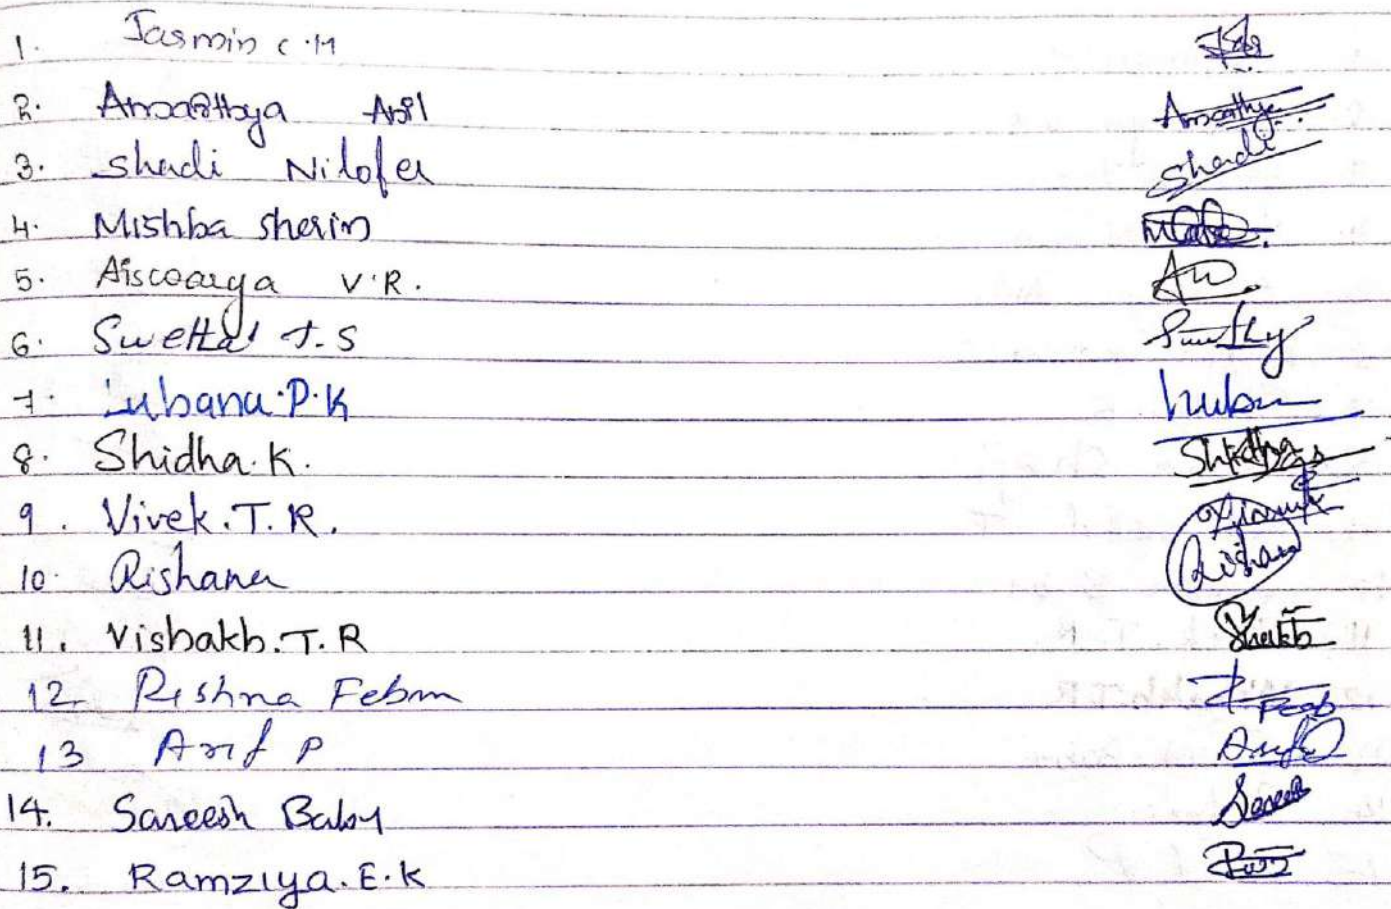 1. Jasmin C.M
2. Amarthya Anil Amarthya
3. Shadi Nilofer Shadi
4. Mishba Sherin
5. Aiswarya V.R.
6. Swetha T.S
7. Lubana.P.K
8. Shidha.K. Shidha
9. Vivek.T.R.
10. Rishana Rishana
11. Vishakh.T.R
12. Rishna Febin
13 Arif P
14. Sareesh Baby
15. Ramziya.E.K